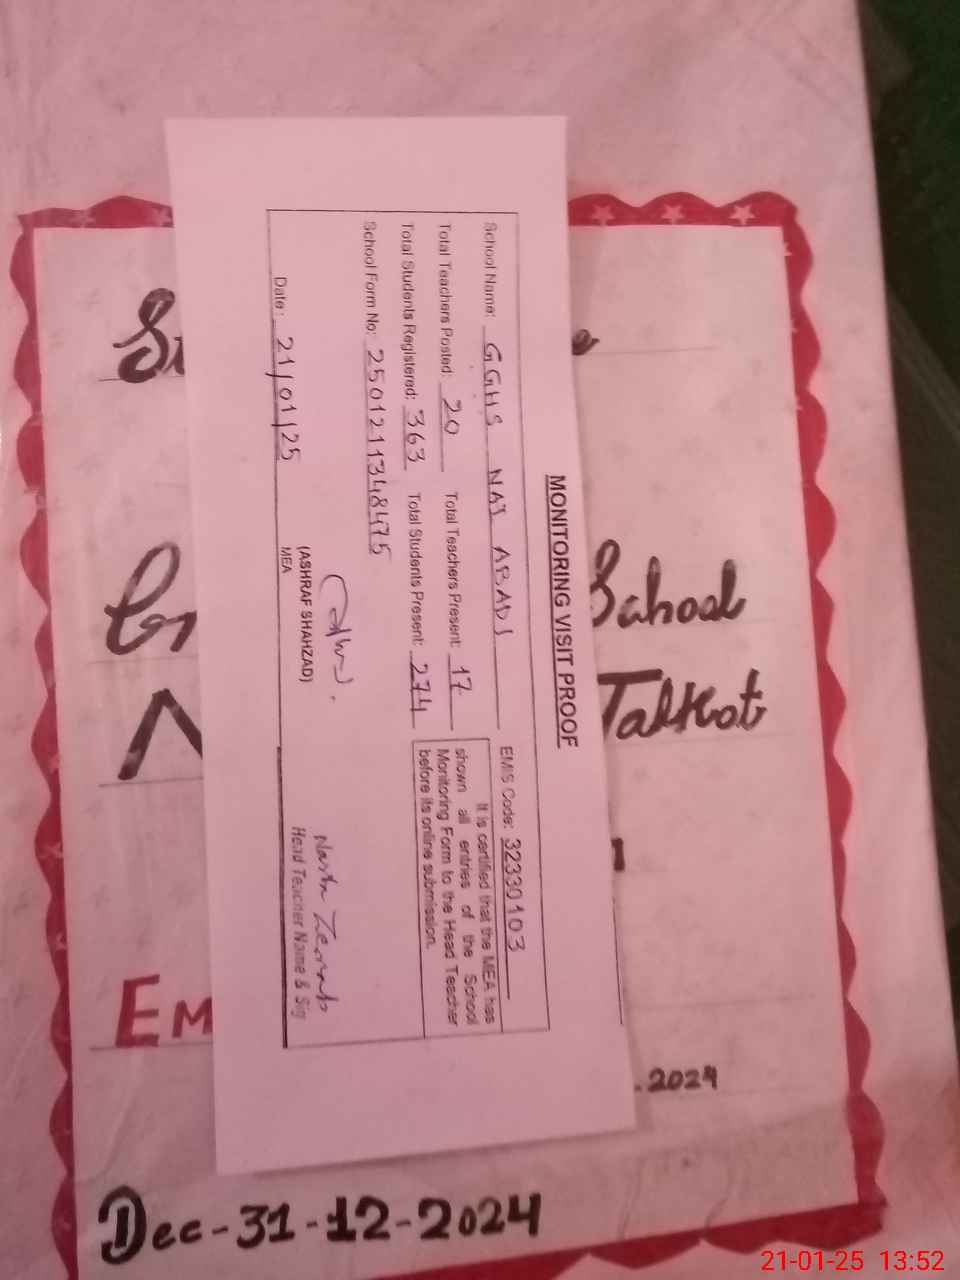 MONITORING VISIT PROOF
School Name: GGHS NAI ABADI EMIS Code: 32330103
Total Teachers Posted: 20 Total Teachers Present: 17
Total Students Registered: 363 Total Students Present: 274
School Form No: 2501211348475
It is certified that the MEA has
shown all entries of the School
Monitoring Form to the Head Teacher
before its online submission.
Date: 21/01/25
(ASHRAF SHAHZAD)
MEA
Head Teacher Name & Sig
School
Talkot
Em
.2024
Dec-31-12-2024
21-01-25 13:52